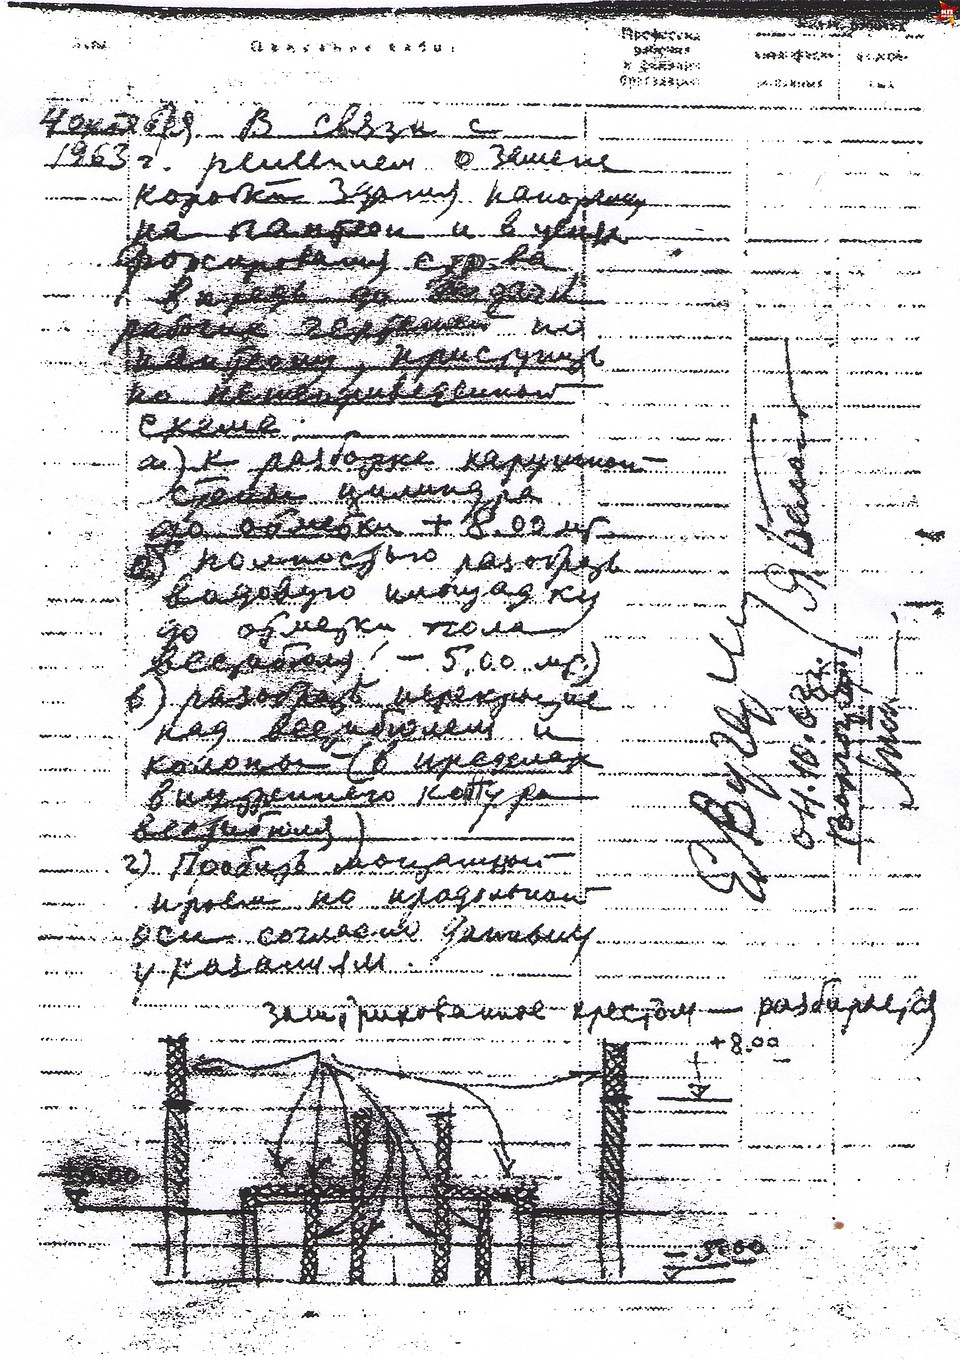 Описание работ
Профессия
4 октября В связи с
1963 г. решением о замене
коробки здания панорамы
на пантеон и в целях
форсирования стр-ва
впредь до выдачи
рабочих чертежей по
пантеону, приступить
по нижеприведенной
схеме:
а) к разборке наружной
стены цилиндра
до отметки + 8.00 мт.
б) полностью разобрать
видовую площадку
до отметки пола
вестибюля (- 5,00 мт.)
в) разобрать перекрытие
над вестибюлем и
колонны (в пределах
внутреннего контура
вестибюля)
г) Пробить
по продольной
оси согласно данным
указаниям.
Заштрихованное крестом — разбирается
+8.00
±0.00
- 5.00
Е Вучетич
04.10.63 г.